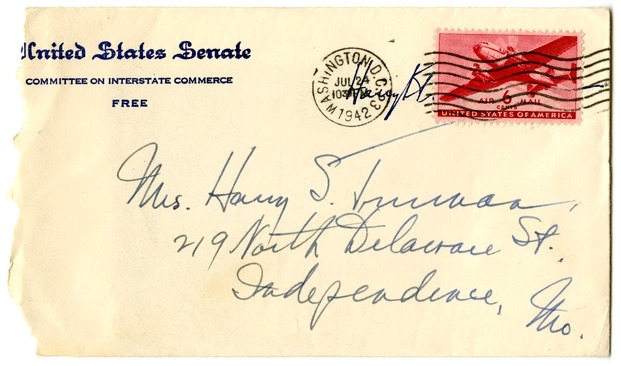 United States Senate
COMMITTEE ON INTERSTATE COMMERCE
FREE
WASHINGTON, D.C.
JUL 24
1942
Harry
AIR 6 MAIL
CENTS
UNITED STATES OF AMERICA
Mrs. Harry S. Truman,
219 North Delaware St.
Independence,
Mo.